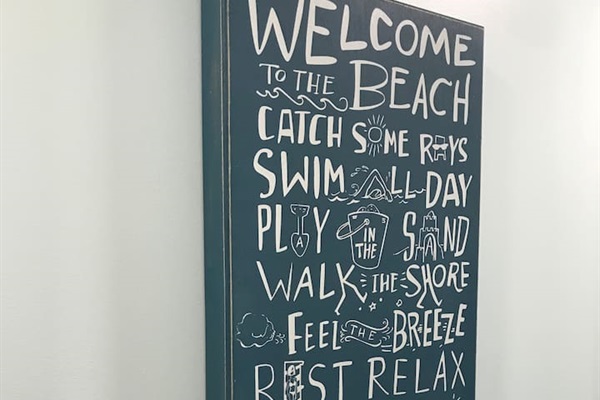 WELCOME
TO THE BEACH
CATCH SOME RAYS
SWIM ALL DAY
PLAY IN THE SAND
WALK THE SHORE
FEEL THE BREEZE
REST RELAX